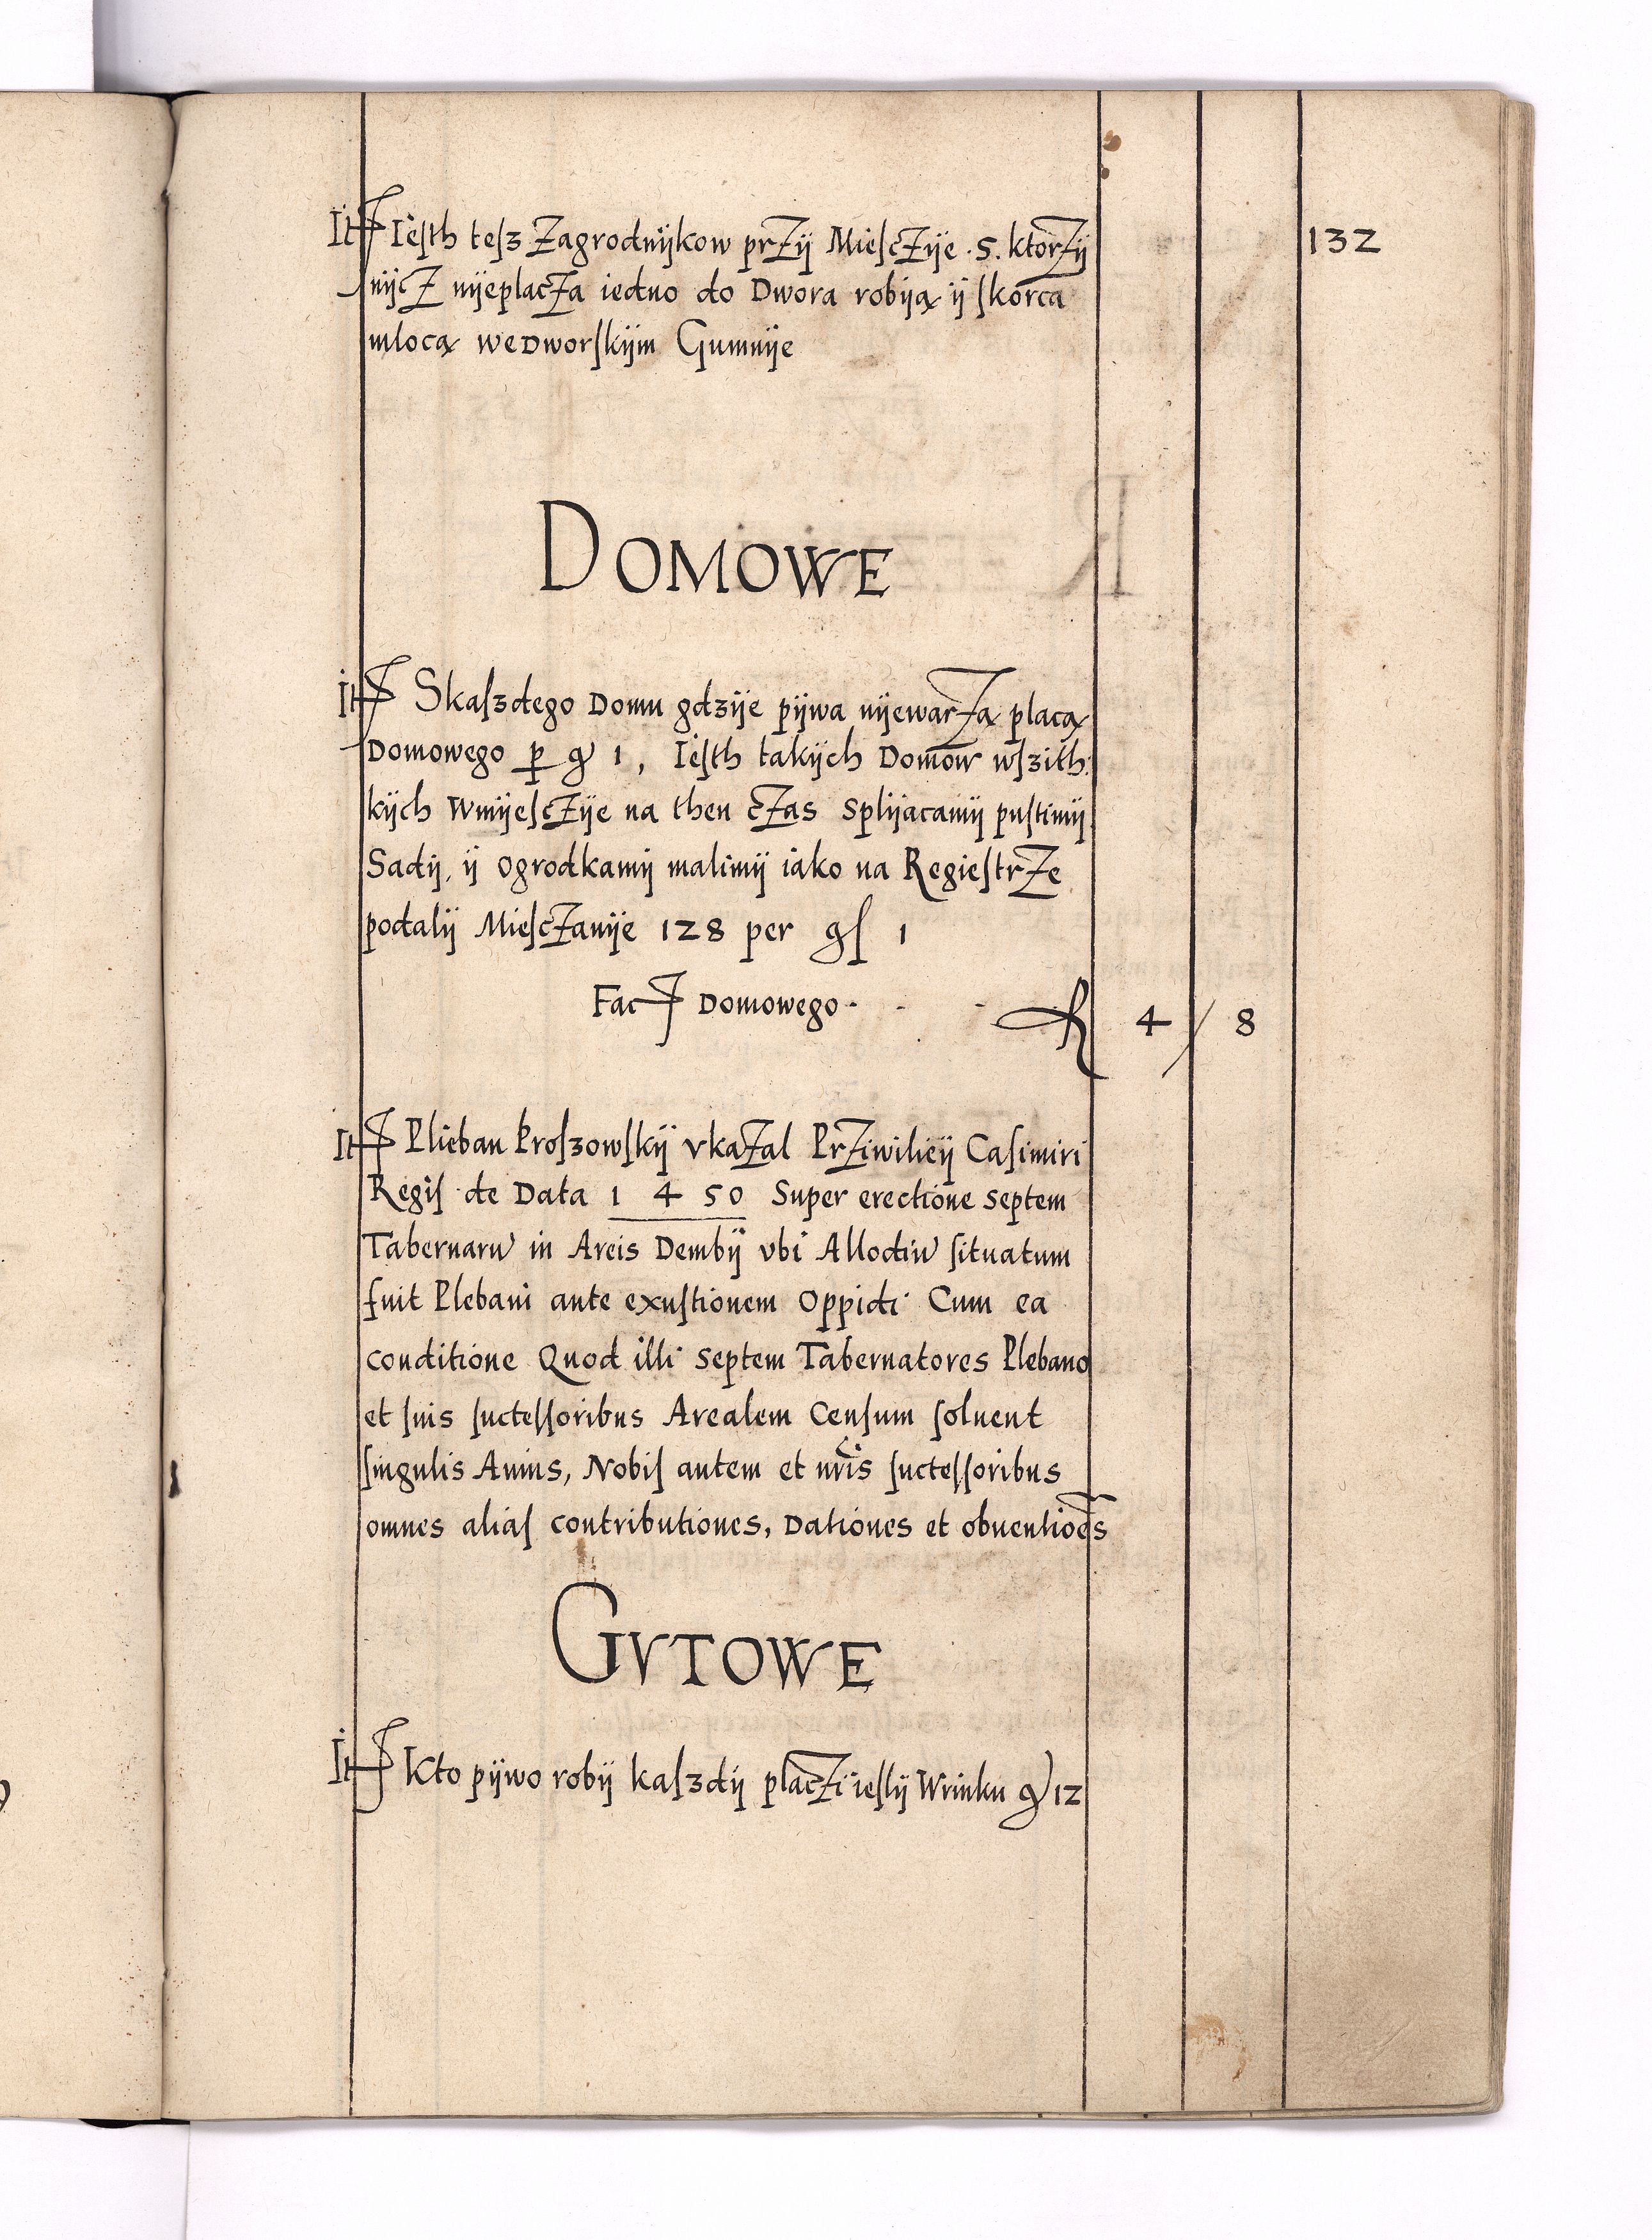 132
It Iesth tesz Zagrodnijkow przij Miesczije .5. ktorzij
nijcz nijeplacza iedno do Dwora robiją ij skorca
mlocą wedworskijm Gumnije
DOMOWE
It Skaszdego Domu gdzije pijwa nijewarzą placą
Domowego p g 1, Iesth takijch Domow wszith:
kijch Wmijesczije na then czas Splijacamij pustimij
Sadij, ij ogrodkamij malimij iako na Regiestrze
podalij Miesczanije 128 per gſ 1
Fact Domowego - - - R 4 / 8
It Plieban Proszowskij vkazal Prziwilieij Casimiri
Regis de Data 1450 Super erectione septem
Tabernaru in Areis Dembij vbi Allodiu situatum
fuit Plebani ante exustionem Oppidi Cum ea
conditione Quod illi septem Tabernatores Plebano
et suis successoribus Arealem Censum soluent
singulis Annis, Nobis autem et nris successoribus
omnes alias contributiones, Dationes et obuentioes
GVTOWE
It Kto pijwo robij kaszdij placzi ieslij Wrinku g 12